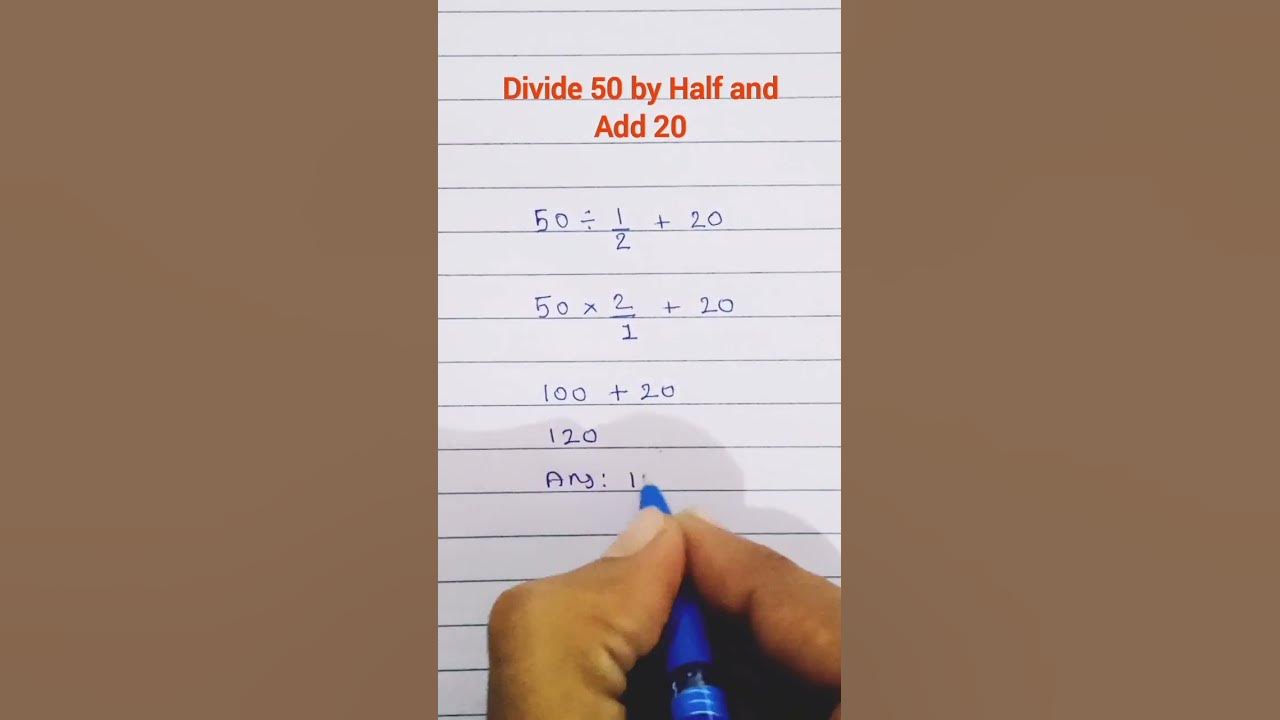 Divide 50 by Half and
Add 20
50 ÷ 1/2 + 20
50 × 2/1 + 20
100 + 20
120
Ans: 1